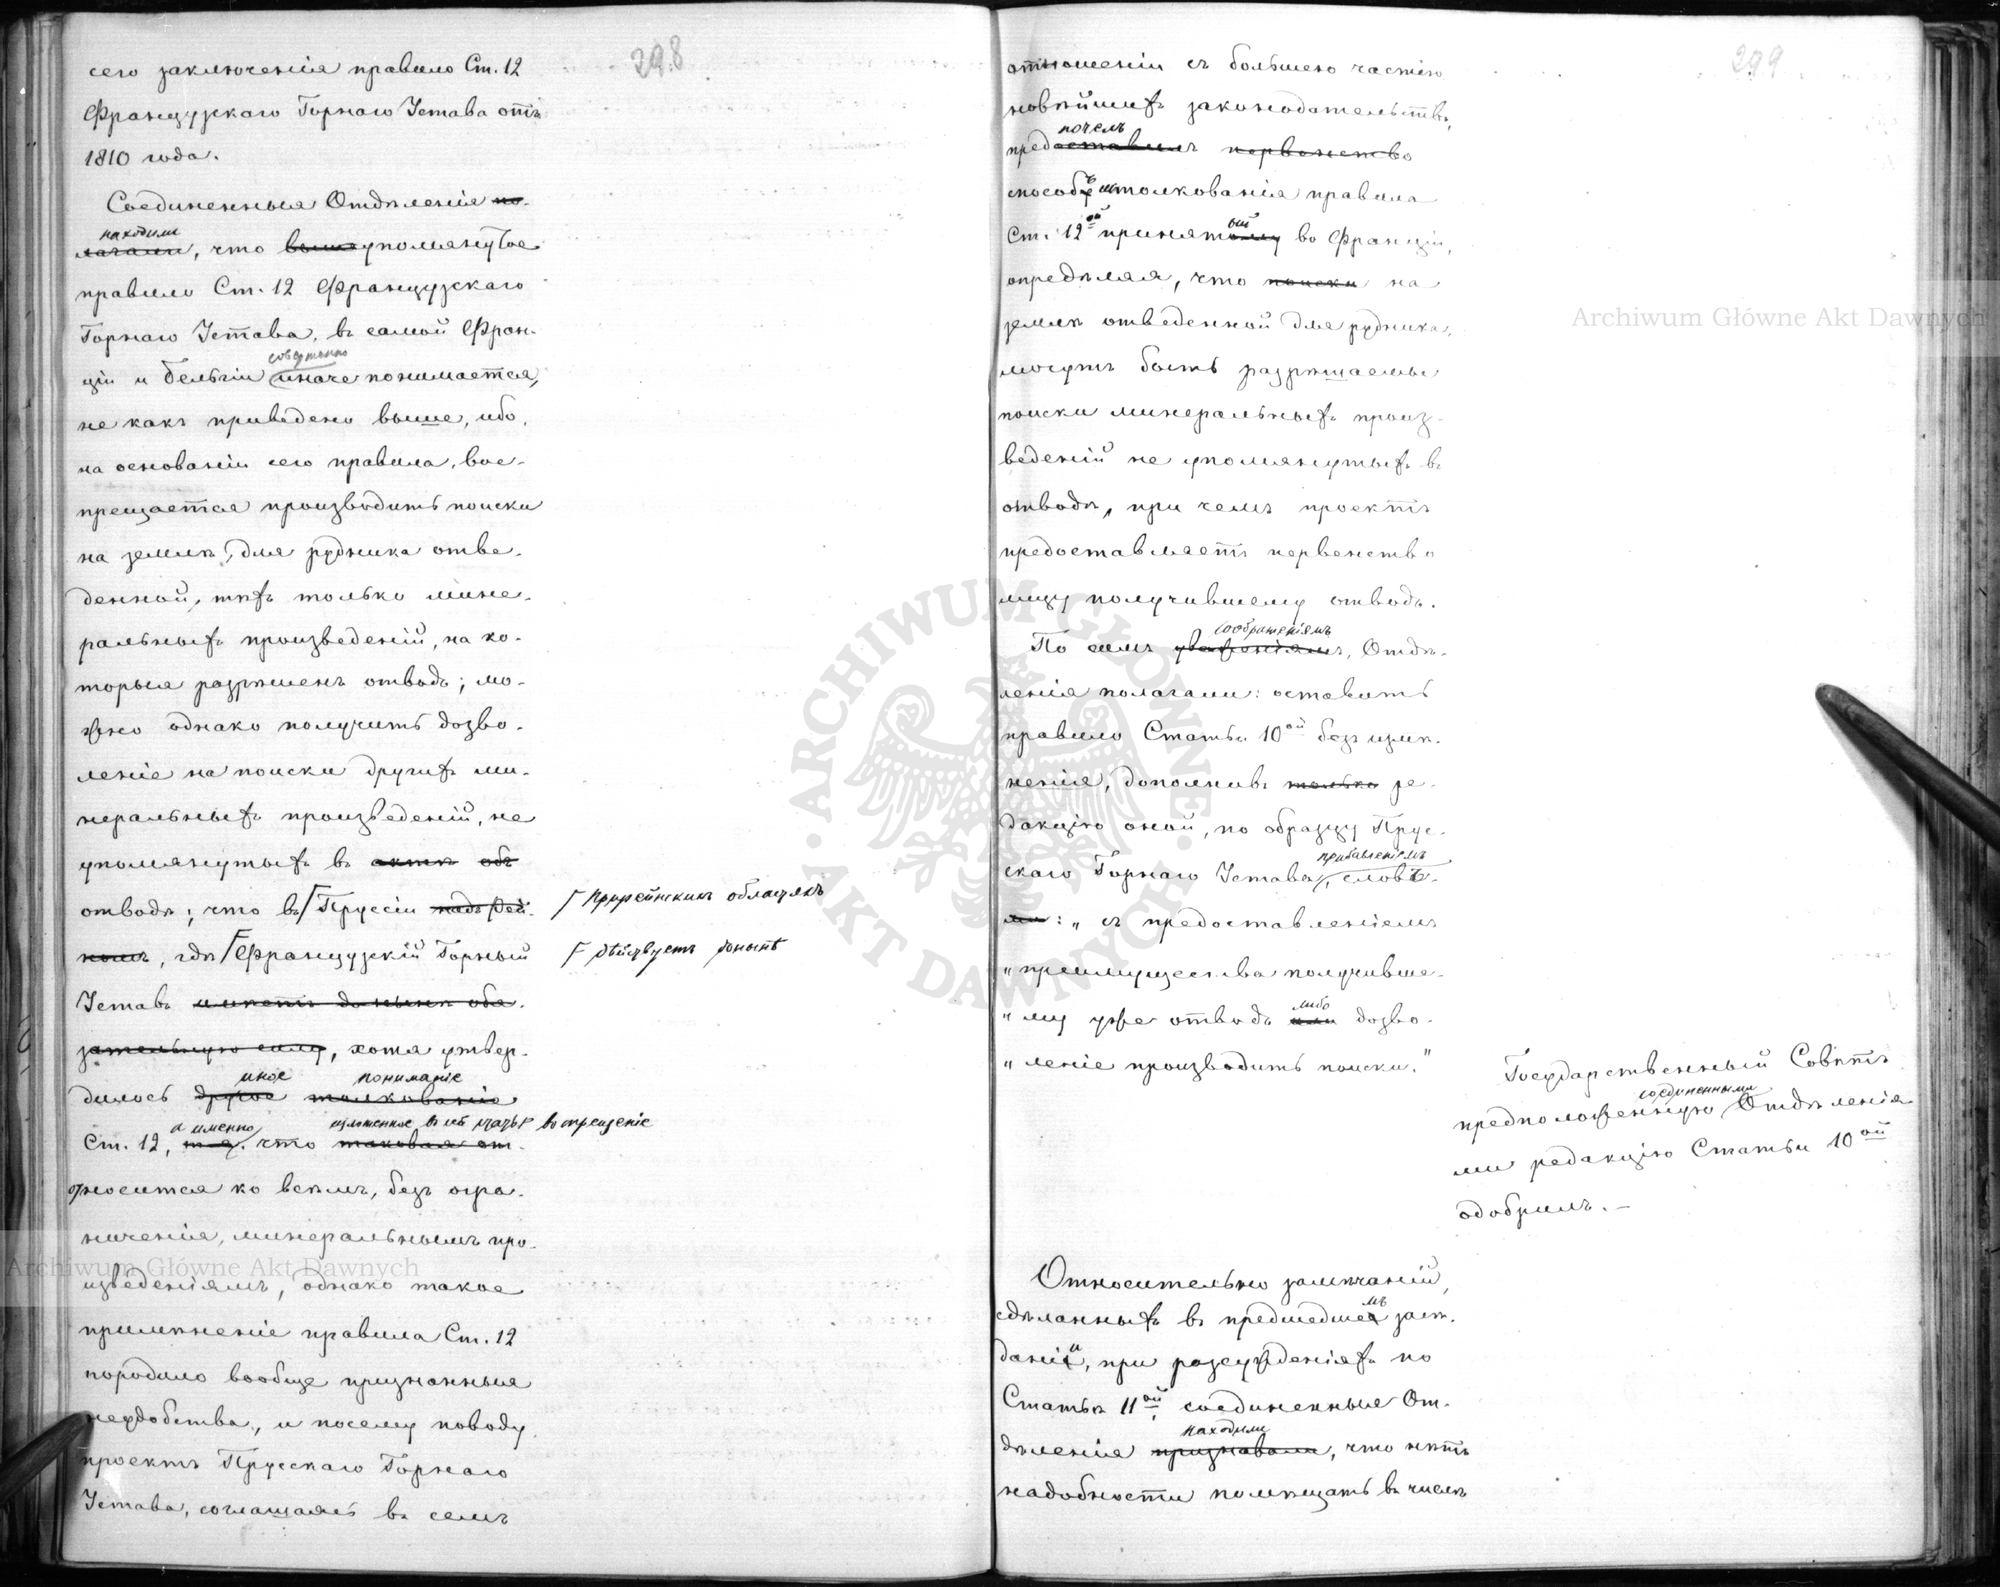 298
сего заключенія правило Ст. 12
Французскаго Горнаго Устава отъ
1810 года.
Соединенныя Отдѣленія по-
находили
лагали, что вышеупомянутое
правило Ст. 12 Французскаго
Горнаго Устава, въ самой Фран-
совершенно
ціи и Бельгіи иначе понимается,
не какъ приведено выше, ибо,
на основаніи сего правила, вос-
прещается производить поиски
на землѣ, для рудника отве-
денной, тѣхъ только мине-
ральныхъ произведеній, на ко-
торыя разрѣшенъ отводъ; мо-
жно однако получить дозво-
леніе на поиски другихъ ми-
неральныхъ произведеній, не
упомянутыхъ въ актѣ объ
отводѣ; что въ Пруссіи надъ Рей-
Прирейнскихъ областяхъ
номъ, гдѣ Французскій Горный
дѣйствуетъ донынѣ
Уставъ имѣетъ донынѣ обя-
зательную силу, хотя утвер-
иное пониманіе
дилось другое толкованіе
а именно изложенное въ ней воспрещеніе
Ст. 12, что таковая от-
относится ко всѣмъ, безъ огра-
ниченія, минеральнымъ про-
изведеніямъ, однако такое
примѣненіе правила Ст. 12
породило вообще признанныя
неудобства, и посему поводу
проектъ Прусскаго Горнаго
Устава, соглашаясь въ семъ
299
отношеніи съ большею частію
новѣйшихъ законодательствъ,
почелъ
предоставилъ первенство
способъ истолкованія правила
Ст. 12ой принятый во Франціи,
опредѣляя, что поиски на
землѣ отведенной для рудника,
могутъ быть разрѣшаемы
поиски минеральныхъ произ-
веденій не упомянутыхъ въ
отводѣ, при чемъ проектъ
предоставляетъ первенство
лицу получившему отводъ.
соображеніямъ
По симъ уваженіямъ, Отдѣ-
ленія полагали: оставить
правило Статьи 10ой безъ измѣ-
ненія, дополнивъ только ре-
дакцію оной, по образцу Прус-
прибавленіемъ
скаго Горнаго Устава, слова-
ми: „съ предоставленіемъ
„преимущества получивше-
либо
„му уже отводъ или дозво-
„леніе производить поиски."
Государственный Совѣтъ
соединенными
предположенную Отдѣленія-
ми редакцію Статьи 10ой
одобрилъ. —
Относительно замѣчаній,
сдѣланныхъ въ предшедшемъ засѣ-
даніи, при разсужденіяхъ по
Статьѣ 11ой, соединенныя От-
находили
дѣленія признавали, что нѣтъ
надобности помѣщать въ числѣ
Archiwum Główne Akt Dawnych
Archiwum Główne Akt Dawnych
ARCHIWUM GŁÓWNE · AKT DAWNYCH ·